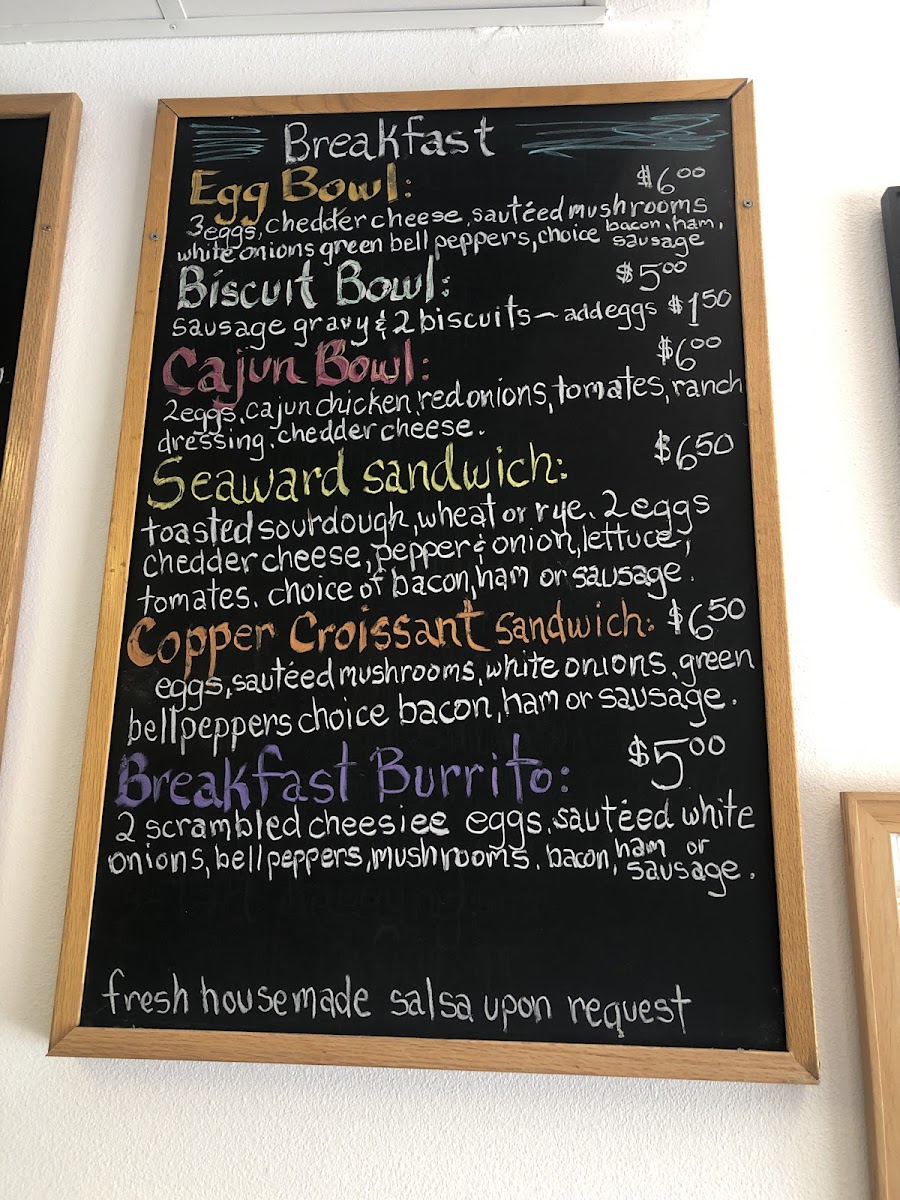 Breakfast
Egg Bowl: $6.00
3 eggs, chedder cheese, sautéed mushrooms
white onions green bell peppers, choice bacon, ham, sausage
Biscuit Bowl: $5.00
sausage gravy & 2 biscuits ~ add eggs $1.50
Cajun Bowl: $6.00
2 eggs, cajun chicken, red onions, tomates, ranch
dressing, chedder cheese.
Seaward sandwich: $6.50
toasted sourdough, wheat or rye. 2 eggs
chedder cheese, pepper & onion, lettuce,
tomates. choice of bacon, ham or sausage.
Copper Croissant sandwich: $6.50
eggs, sautéed mushrooms, white onions, green
bell peppers choice bacon, ham or sausage.
Breakfast Burrito: $5.00
2 scrambled cheesiee eggs, sautéed white
onions, bell peppers, mushrooms. bacon, ham or sausage.
fresh housemade salsa upon request